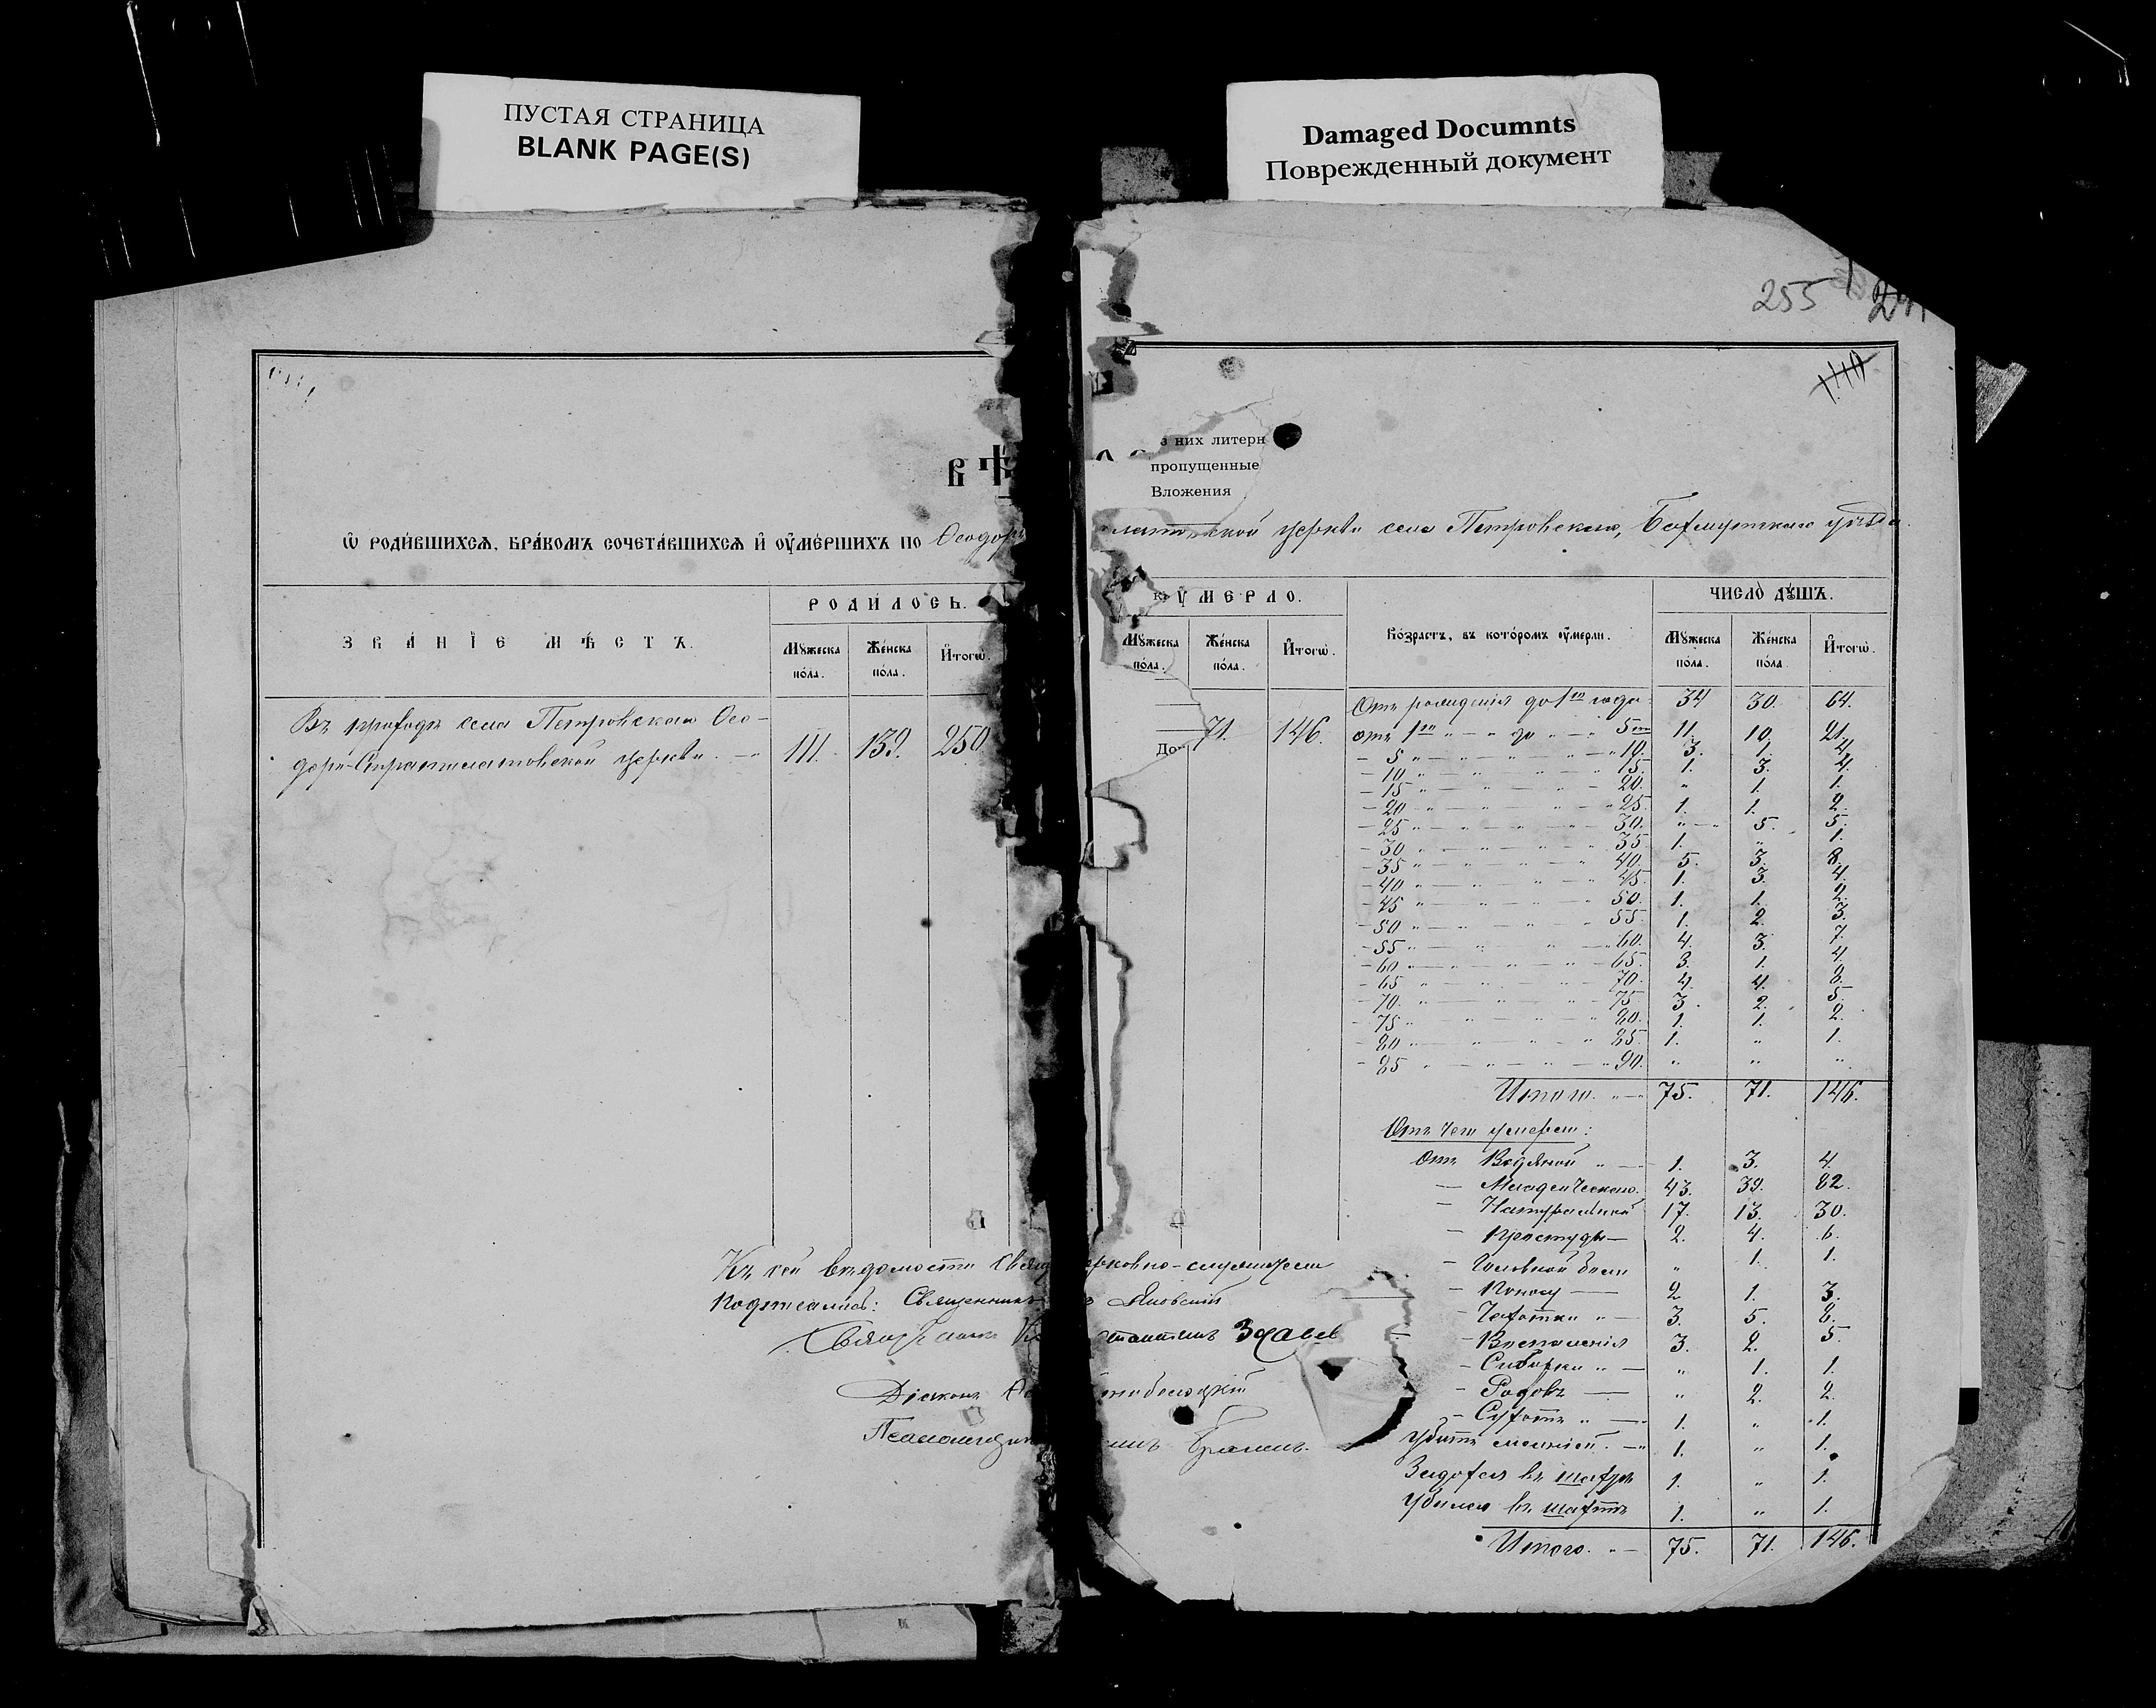 ПУСТАЯ СТРАНИЦА
BLANK PAGE(S)
Damaged Documnts
Поврежденный документ
255
з них литерн
пропущенные
Вложения
ВѢ
Ѡ РОДИВШИХСѦ, БРАКОМЪ СОЧЕТАВШИХСѦ И ОУМЕРШИХЪ ПО Ѳеодо
латовской церкви села Петровскаго, Бахмутскаго уѣзда.
ЗВАНІЕ МѢСТЪ.
РОДИЛОСЬ.
Мꙋжеска пола.
Женска пола.
Итогѡ.
Въ приходѣ села Петровскаго Ѳео-
доро-Стратилатовской церкви. 111. 139. 250.
УМЕРЛО.
Мꙋжеска пола.
Женска пола.
Итогѡ.
До 71. 146.
Возрастъ, въ которомъ оумерли.
ЧИСЛО ДꙊШЪ.
Мꙋжеска пола.
Женска пола.
Итогѡ.
Отъ рожденія до 1го года. 34 30. 64.
отъ 1го " — " до " — " 5ти 11. 10. 21.
— 5 " — " — " 10. 3. 1. 4.
— 10 " — " — " 15. 1. 3. 4.
— 15 " — " — " 20. " 1. 1.
— 20 " — " — " 25. 1. 1. 2.
— 25 " — " — " 30. " 5. 5.
— 30 " — " — " 35. 1. " 1.
— 35 " — " — " 40. 5. 3. 8.
— 40 " — " — " 45. 1. 3. 4.
— 45 " — " — " 50. 1. 1. 2.
— 50 " — " — " 55. 1. 2. 3.
— 55 " — " — " 60. 4. 3. 7.
— 60 " — " — " 65. 3. 1. 4.
— 65 " — " — " 70. 4. 4. 8.
— 70 " — " — " 75. 3. 2. 5.
— 75 " — " — " 80. 1. 1. 2.
— 80 " — " — " 85. 1. " 1.
— 85 " — " — " 90. " " "
Итого. " — 75. 71. 146.
Отъ чего умерли:
Отъ Водяной " — 1. 3. 4.
— Младенческаго. 43. 39. 82.
— Натуральной 17. 13. 30.
— Простуды — 2. 4. 6.
— Головной боли " 1. 1.
— Поносу — 2 1. 3.
— Чахотки " — 3. 5. 8.
— Воспаленія 3. 2. 5.
— Сибирки " — " 1. 1.
— Родовъ — " 2. 2.
— Сухотъ " — 1. " 1.
Убитъ молніей. — 1. " 1.
Задохся въ шахтѣ 1. " 1.
Убился въ шахтѣ 1. " 1.
Итого. " — 75. 71. 146.
Къ сей вѣдомости Свящ рковно-служители
Подписались: Священникъ Яновскій
Священникъ
Діаконъ
Псаломщикъ